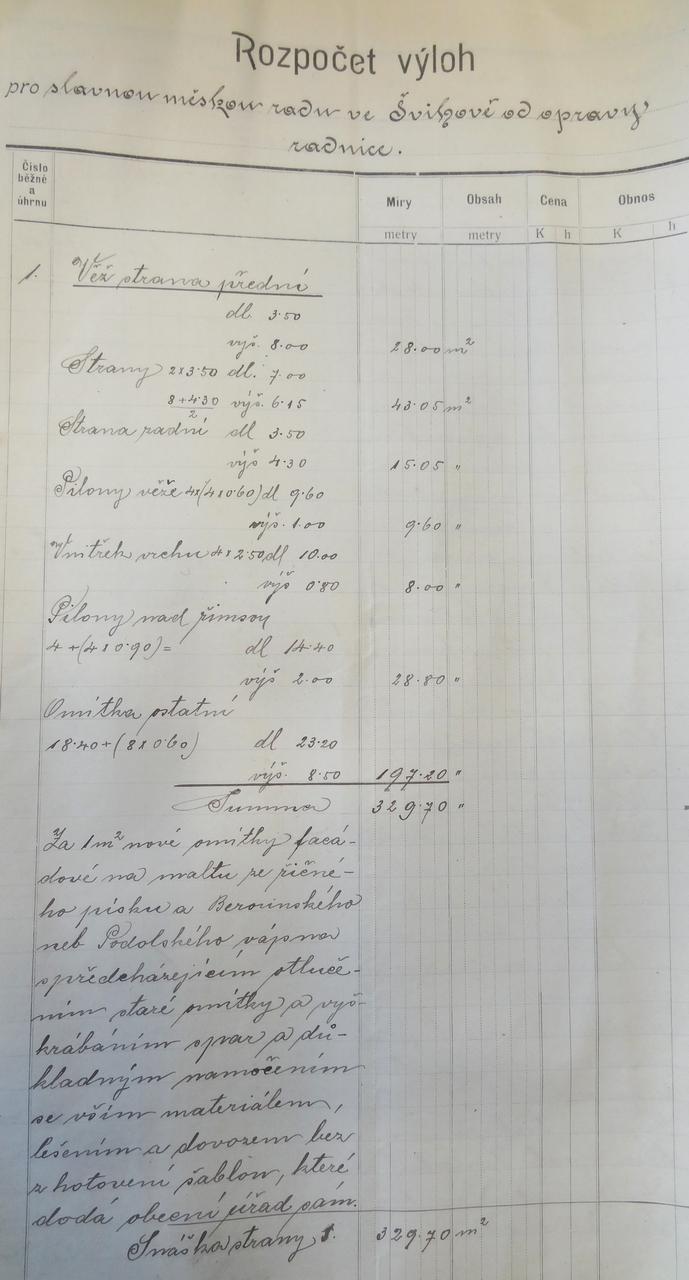 Rozpočet výloh
pro slavnou městkou radu ve Švihově od opravy
radnice.
Číslo běžné a úhrnu
Míry Obsah Cena Obnos
metry metry K h K h
1. Věž strana přední
dl 3·50
výš. 8·00 28·00 m²
Strany 2x3·50 dl. 7·00
8+4·30/2 výš. 6·15 43·05 m²
Strana radní dl 3·50
výš 4·30 15·05 "
Pilony věže 4x(4x0·60) dl 9·60
výš. 1·00 9·60 "
Vnitřek vrchu 4x2·50 dl 10·00
výš 0·80 8·00 "
Pilony nad římsou
4+(4x0·90)= dl 14·40
výš 2·00 28·80 "
Omítka ostatní
18·40+(8x0·60) dl 23·20
výš. 8·50 197·20 "
Summa 329·70 "
Za 1m² nové omítky facá-
dové na maltu ze říčné-
ho písku a Berounského
neb Podolského vápna
s předcházejícím otluče-
ním staré omítky a vyš-
krábáním spar a dů-
kladným namočením
se vším materiálem,
lešením a dovozem bez
zhotovení šablon, které
dodá obecní úřad sám.
Snáška strany 1. 329·70 m²